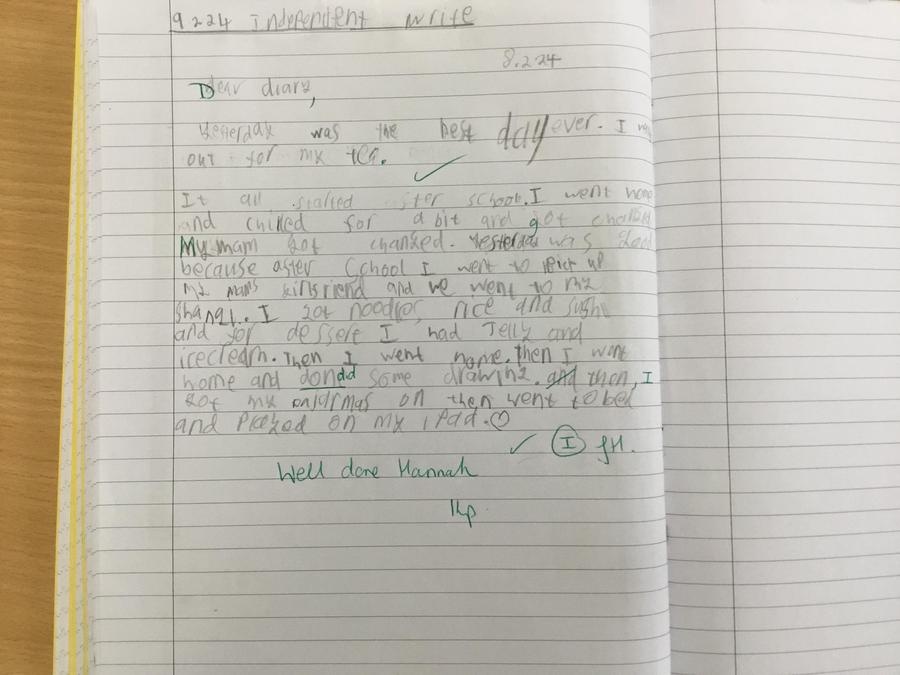 9 2 24 Independent write
8.2.24
Dear diary,
Yesterday was the best day ever. I
out for my tea.
It all started after school. I went home
and chilled for a bit and got changed
My mam got changed. Yesterday was good
because after School I went to Pick up
my mams girlsriend and we went to mz
shangi. I got noodles, rice and sushi
and for dessert I had Jelly and
icecream. Then I went home. then I went
home and some drawing. and then, I
got my on then went to bed
and Played on my iPad.
I JH.
Well done Hannah
1hp